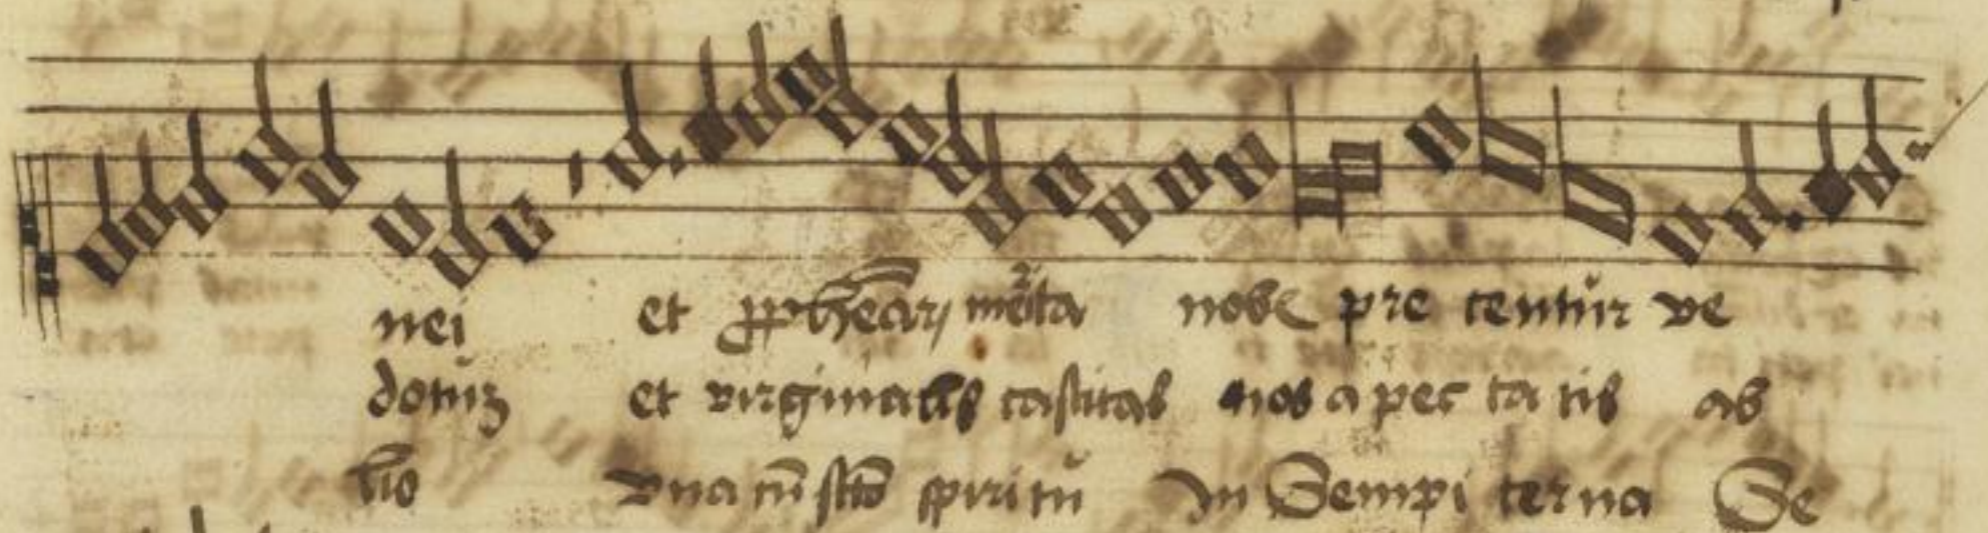 nei et ꝓphetar, mẽita nobꝭ pre centur ve
dotuꝫ et virginalis castitas nos a pec ca tis ab
tis vna cũ sctõ spiritũ In Sempi terna Se